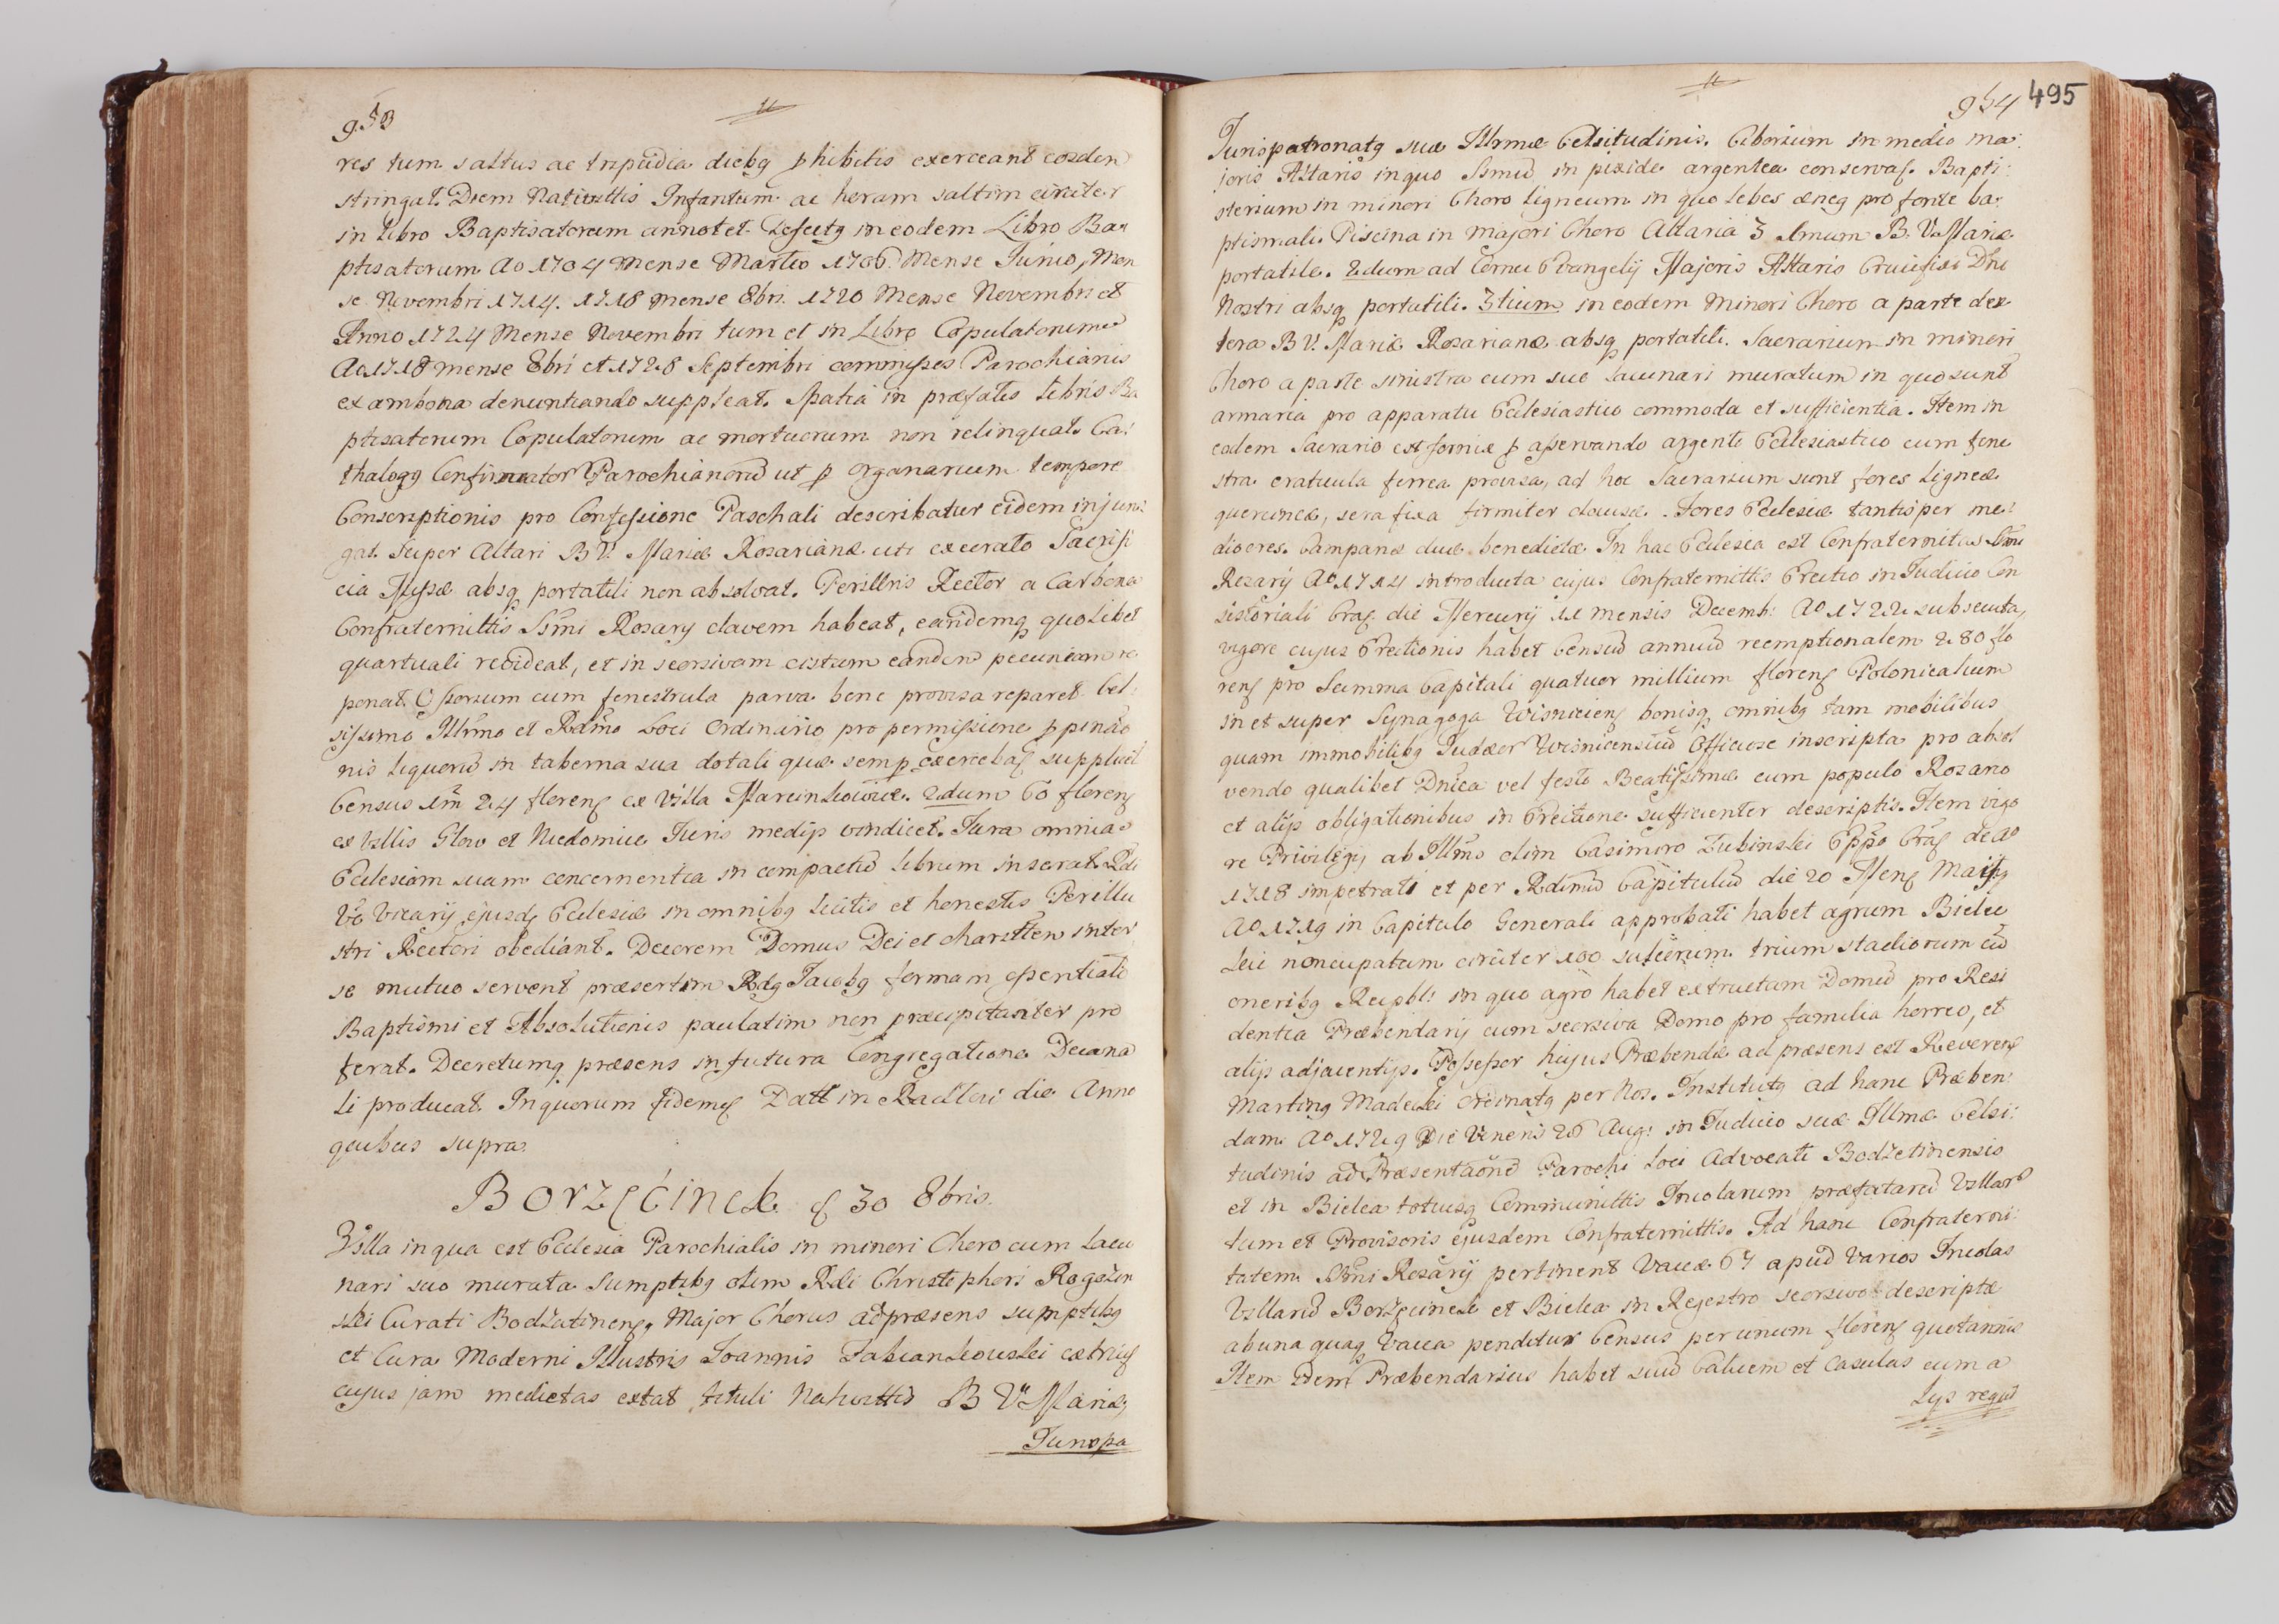 953
res tum saltus ac tripudia diebq phibitis exerceant eosdem
stringat. Diem Nativittis Infantum ac horam saltim circiter
in Libro Baptisatorum annotet. Defectq in eodem Libro Ba-
ptisatorum Ao 1704 Mense Martio 1706. Mense Junio, Men
se Novembri 1714. 1718 mense 8bri. 1720 Mense Novembri et
Anno 1724 Mense Novembri tum et in Libro Copulatorum
Ao 1718 mense 8bri et 1728 Septembri commisses Parochianis
ex ambona denuntiando suppleat. Spatia in præfatis Libris Ba
ptisatorum Copulatorum ac mortuorum non relinquat. Ca:
thalogq Parochianorũ ut p organarium tempore
Conscriptionis pro Confessione Paschali describatur eidem injun:
gat. Super Altari B V. Mariæ Rosarianæ uti execrato Sacrifi
cia Missæ absq portatili non absolvat. Perillris Rector a Carbona
Confraternittis Ssmi Rosarij clavem habeat, eandemq quolibet
quartuali recideat, et in seorsivam cistam eandem pecuniam re
ponat. Ossorium cum fenestrula parva bene provisa reparet. Cel:
sissimo Illrmo et Rdmo Loci Ordinario pro permissione ppinãõ
nis liquorũ in taberna sua dotali quæ semp exercebaʃ supplicet
Census 1m 24 florenʃ ex Villa Marcinkowice. 2dum 60 florenʃ
ex Villis Glow et Niedomice Juris medijs vindicet. Jura omnia
Ecclesiam suam concernentia in compactũ librum inserat. Rdi
Vo Vicarij ejusdʃ Ecclesiæ in omnibq licitis et honestis Perillu
stri Rectori obediant. Decorem Domus Dei et charittem inter
se mutuo servent præsertim Rdq Jacobq formam essentialẽ
Baptismi et Absolutionis paulatim non præcipitanter pro
ferat. Decretumq præsens in futura Congregatione Decana
li producat. In quorum fidemʃ Datt in Radlow die Anno
quibus supra.
Borzęcinek ʃ 30 8bris.
Villa in qua est Ecclesia Parochialis in minori Choro cum Lacu
nari suo murata Sumptibq olim Rdi Christophori Rogozin
ski Curati Bodzatinenʃ. Major Chorus ad præsens sumptibq
et Cura Moderni Illustris Joannis Fabiankowski
cujus jam medietas extat tituli Nativittis B V Mariæ,
Jurispa
954
495
Jurispatronatq suæ Illrmæ Celsitudinis. Ciborium in medio Ma:
joris Altaris in quo Ssmũ in pixide argentea conservaʃ. Bapti:
sterium in minori Choro Ligneum in quo Lebes æneq pro fonte ba:
ptismali. Piscina in majori Choro Altaria 3 1mum B. V. Mariæ
portatile. 2dum ad Cornu Evangelij Majoris Altaris Crucifixi Dni
Nostri absq portatili. 3tium in eodem Minori Choro a parte dex
tera B V. Mariæ Rosarianæ absq portatili. Sacrarium in minori
Choro a parte sinistra cum suo Lacunari muratum in quo sunt
armaria pro apparatu Ecclesiastico commoda et sufficientia. Item in
eodem Sacrario est fornix p asservando argento Ecclesiastico cum fene
stra craticula ferrea provisa, ad hoc Sacrarium sunt fores Ligneæ
quercineæ, sera fixa firmiter clausæ. Fores Ecclesiæ tantisper me:
diocres. Campanæ duæ benedictæ. In hac Ecclesia est Confraternitas Ssmi
Rosarij Ao 1714 introducta cujus Confraternittis Erectio in Judicio Con
sistoriali Craʃ. die Mercurij 11 mensis Decemb: Ao 1722 subsecuta,
vigore cujus Erectionis habet Censũ annuũ reemptionalem 280 flo
renʃ pro Summa Capitali quatuor millium florenʃ Polonicalium
in et super Synagoga Wisnicienʃ bonisq omnibq tam mobilibus
quam immobilibq Judæor Wisnicensiũ Officiose inscripta pro absol
vendo qualibet Dnica vel festo Beatissimæ cum populo Rosario
et alijs obligationibus in Erectione sufficienter descriptis. Item vigo
re Privilegij ab Illmo olim Casimiro Łubinski Eppo Craʃ de Ao
1718 impetrati et per Rdmũ Capitulũ die 20 Menʃ Maijq
Ao 1719 in Capitulo Generali approbati habet agrum Bielec
kie noncupatum circiter 100 sulcorum trium stadiorum cũ
oneribq Reipbl: in quo agro habet extructum Domũ pro Resi
dentia Præbendarij cum seorsiva Domo pro familia horreo, et
alijs adjacentijs. Possessor hujus Præbendæ ad præsens est Reverenʃ
Martinq Madecki ordinatq per Nos. Institutq ad hanc Præben:
dam Ao 1729 Die Veneris 26 Aug: in Judicio suæ Illmæ Celsi:
tudinis ad Præsentaõnẽ Parochi Loci Advocati Bodzetinensis
et in Bielca totiusq Communittis Incolarum præfatarũ Villarũ
tum et Provisoris ejusdem Confraternittis. Ad hanc Confraterni
tatem Ssmi Rosarij pertinent Vaccæ 67 apud varios Incolas
Villarũ Borzęcinek et Bielca in Regestro seorsivo descriptæ
ab una quaq Vacca penditur Census per unum florenʃ quotannis
Item Idem Præbendarius habet suũ Calicem et Casulas cum a
lijs reqũ